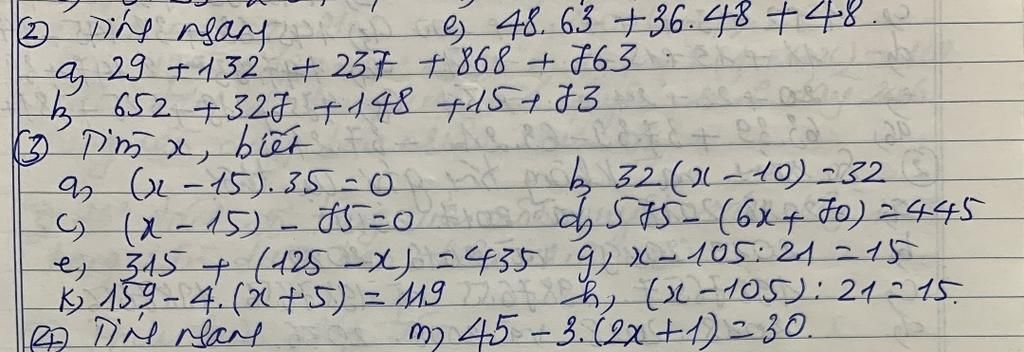 ② Tính nhanh e, 48.63 + 36.48 + 48.
a, 29 + 132 + 237 + 868 + 763
b, 652 + 327 + 148 + 15 + 73
③ Tìm x, biết
a, (x - 15).35 = 0 b, 32(x - 10) = 32
c, (x - 15) - 75 = 0 d, 575 - (6x + 70) = 445
e, 315 + (125 - x) = 435 g, x - 105 : 21 = 15
k, 159 - 4.(x + 5) = 119 h, (x - 105) : 21 = 15.
④ Tính nhanh m, 45 - 3.(2x + 1) = 30.